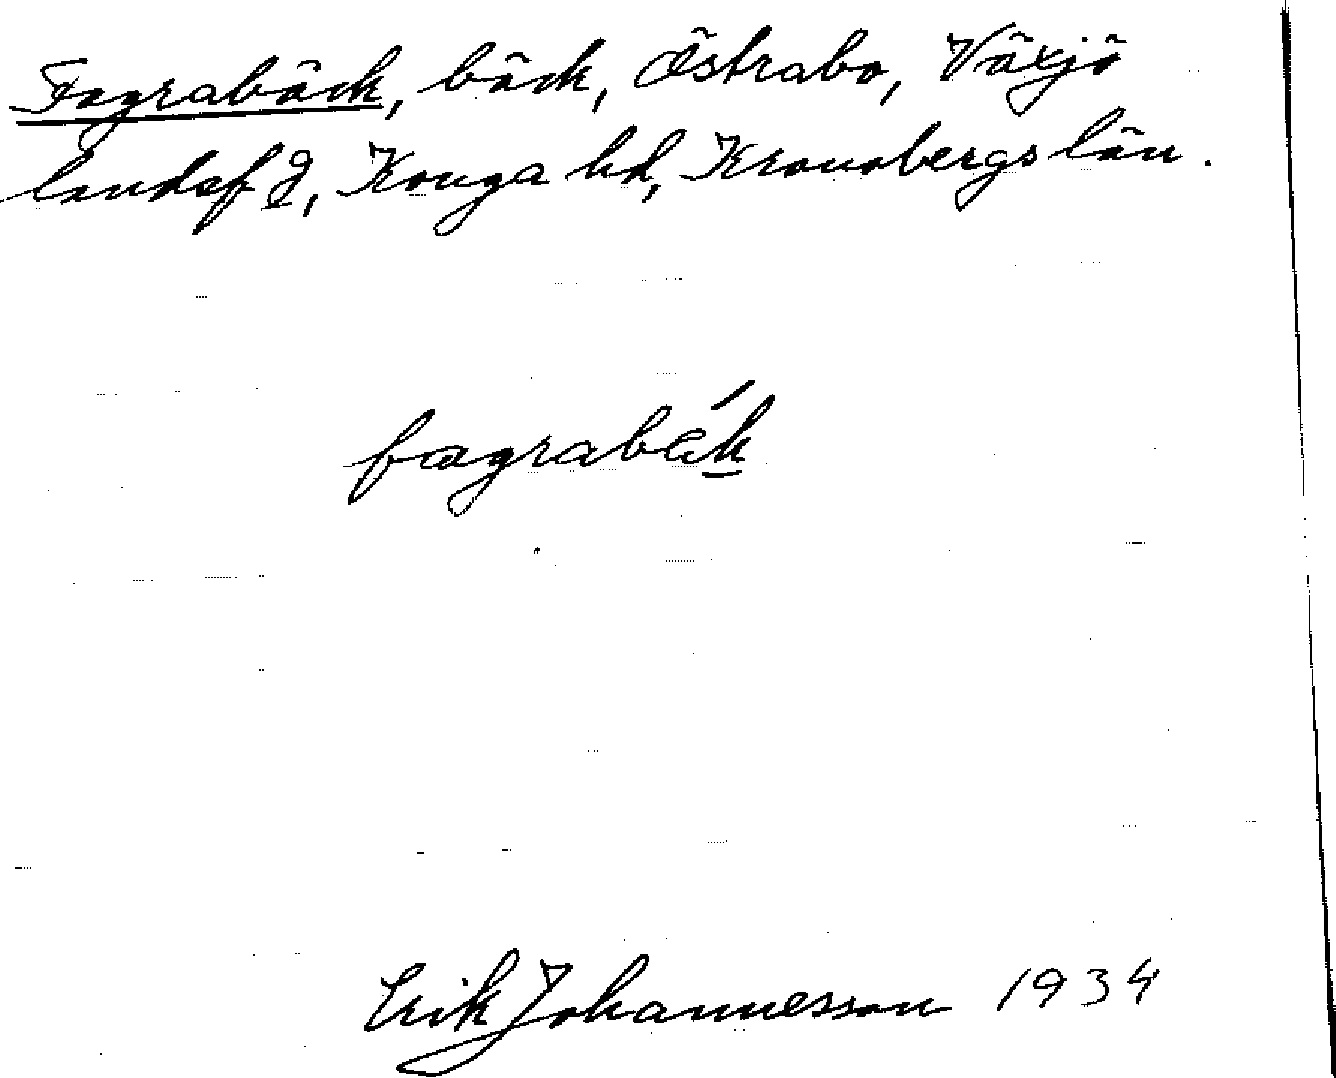 Fagrabäck, bäck, Östrabo, Växjö
landsf ꝑ, Konga hd, Kronobergs län.
fagrabäk
Erik Johannesson 1934